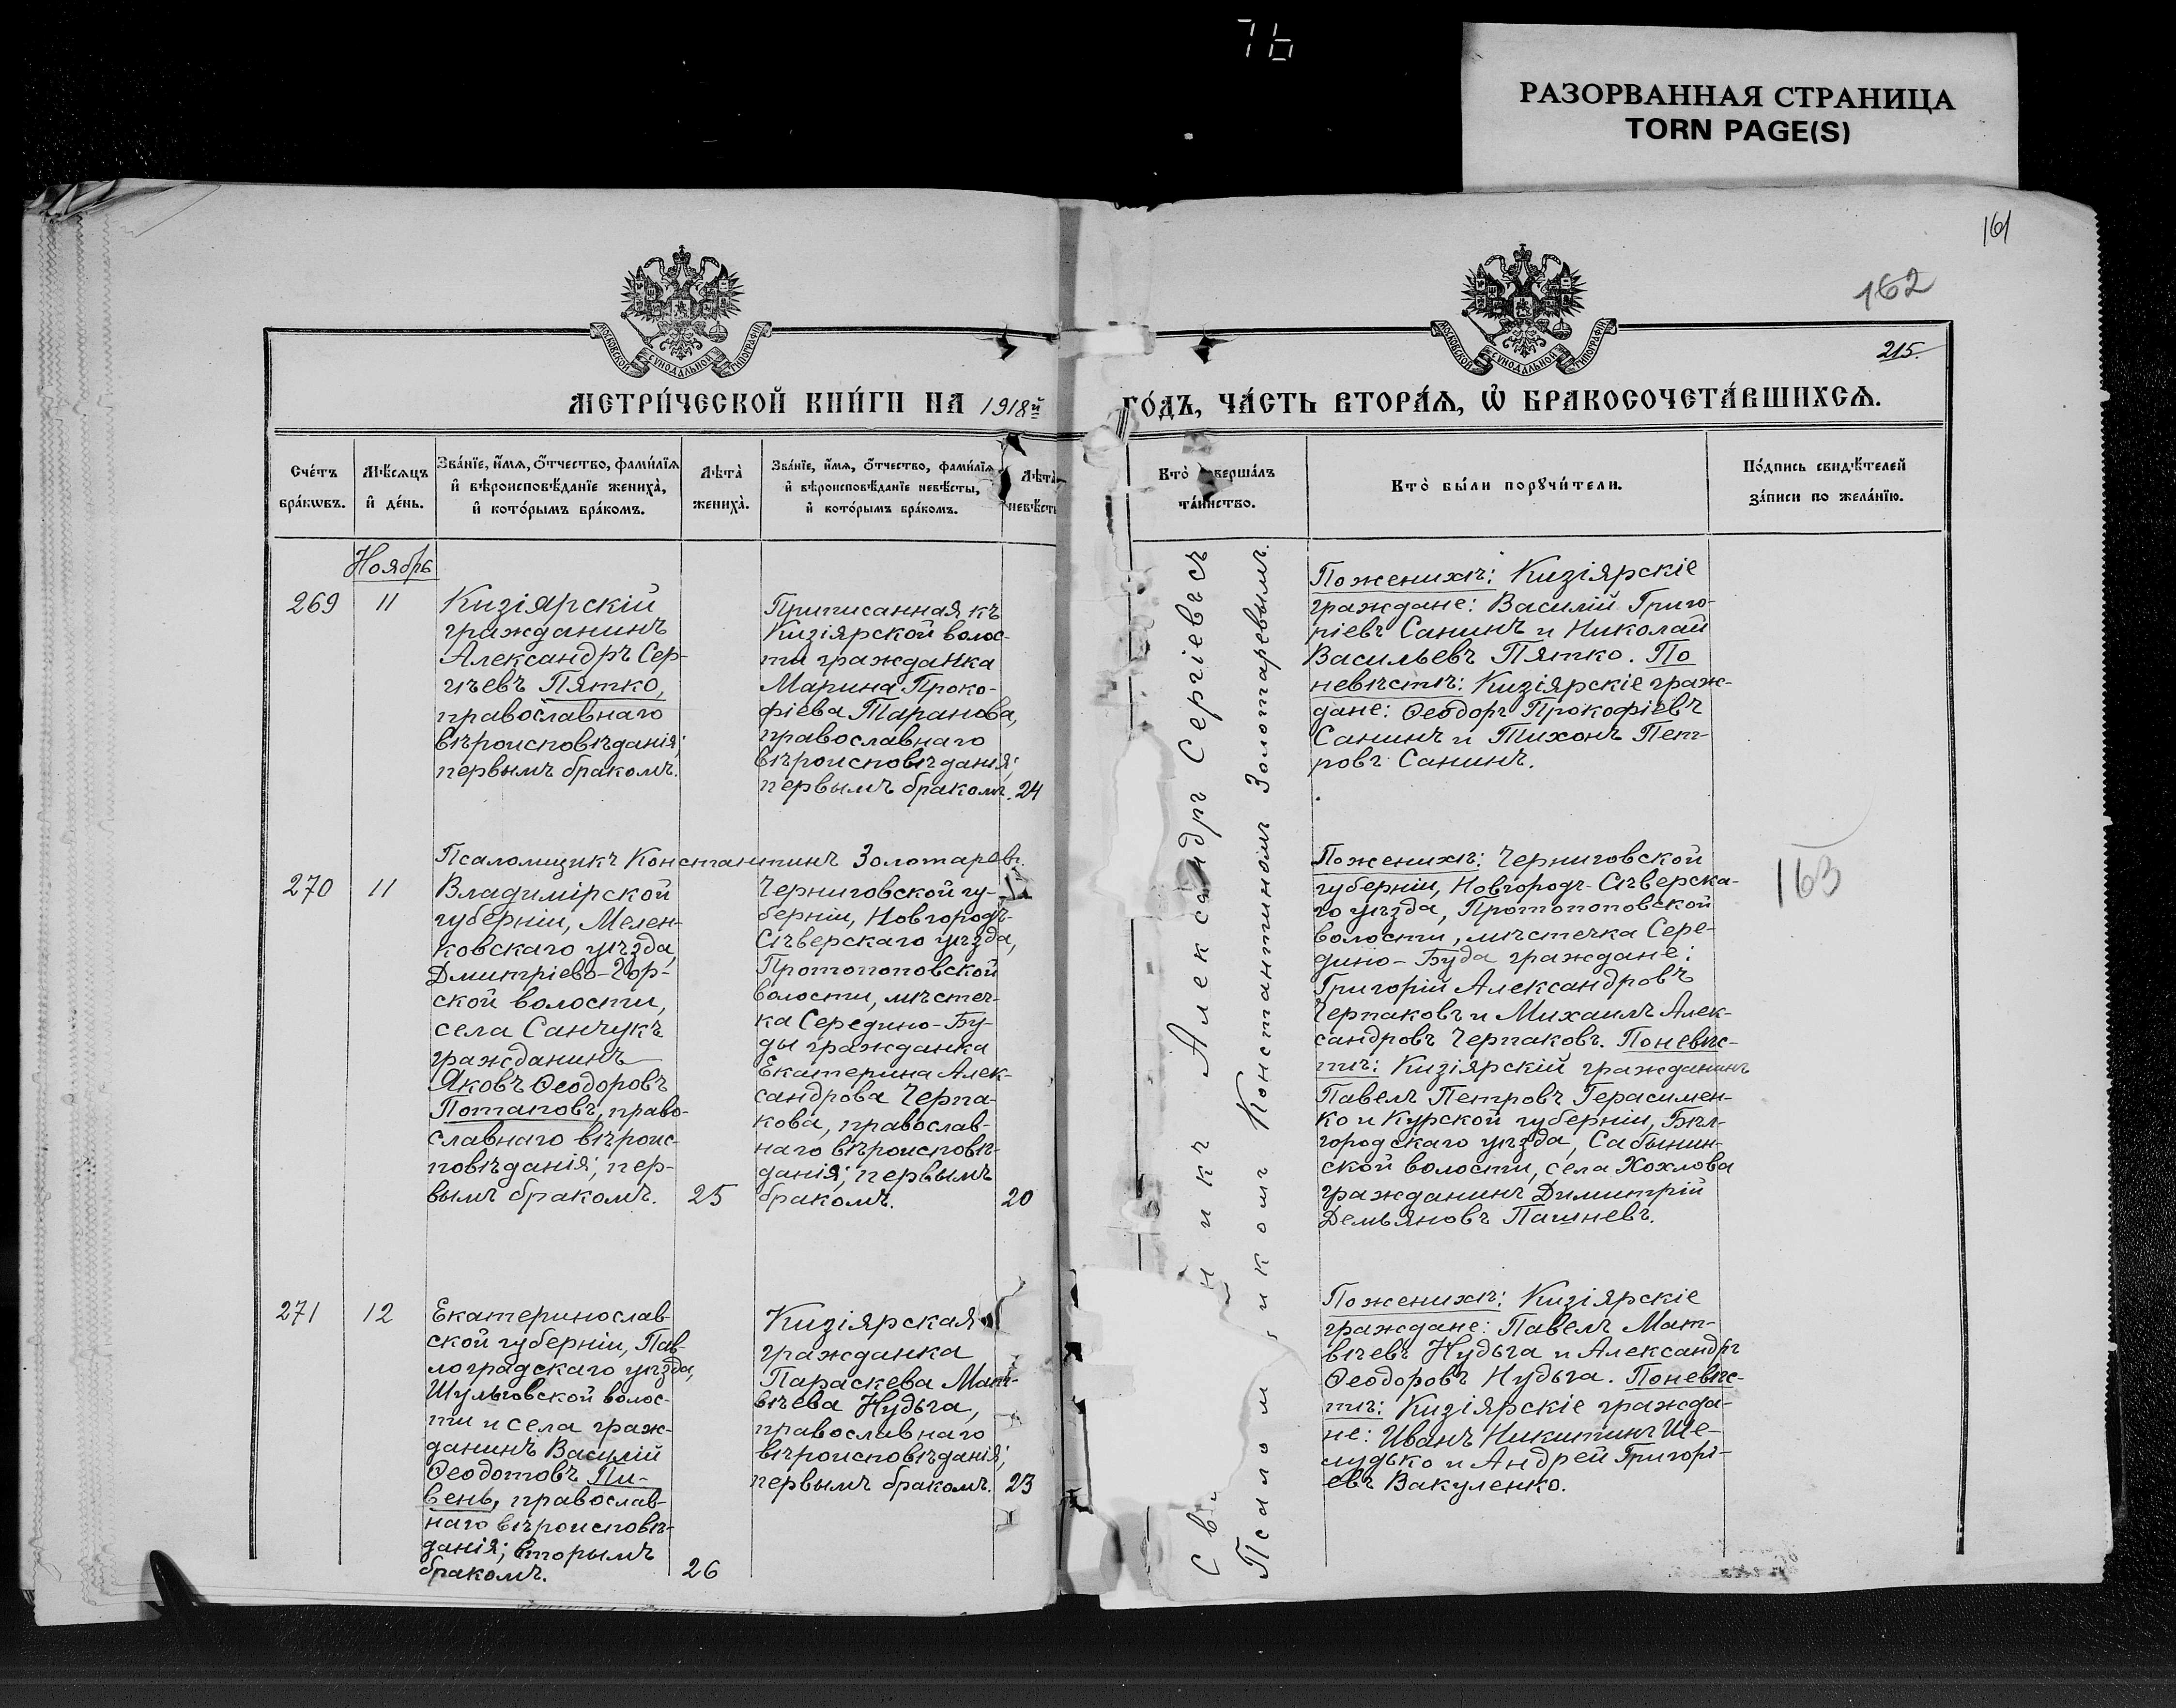 76
РАЗОРВАННАЯ СТРАНИЦА
TORN PAGE(S)
161
162
215.
МОСКОВСКОЙ СѴНОДАЛЬНОЙ ТИПОГРАФІИ
МОСКОВСКОЙ СѴНОДАЛЬНОЙ ТИПОГРАФІИ
МЕТРИ́ЧЕСКОЙ КНИ́ГИ НА 1918й
ГО́ДЪ, ЧА́СТЬ ВТОРА́Я, Ѡ҆ БРАКОСОЧЕТА́ВШИХСЯ.
Сче́тъ
бра́кѡвъ.
Мѣ́сяцъ
и҆ де́нь.
Зва́нїе, и҆́мя, ѻ҆́тчество, фами́лїя
и҆ вѣроисповѣ́данїе жениха̀,
и҆ кото́рымъ бра́комъ.
Лѣта̀
жениха̀.
Зва́нїе, и҆́мя, ѻ҆́тчество, фами́лїя
и҆ вѣроисповѣ́данїе невѣ́сты,
и҆ кото́рымъ бра́комъ.
Лѣта̀
невѣ́сты
Кто̀ совершалъ
та́инство.
Кто̀ бы́ли порꙋчи́тели.
По́дпись свидѣ́телей
за́писи по жела́нїю.
Ноябрь
269
11
Кизіярскій
гражданинъ
Александръ Сер-
гѣевъ Пятко,
православнаго
вѣроисповѣданія;
первымъ бракомъ.
Приписанная къ
Кизіярской волос-
ти гражданка
Марина Проко-
фіева Таранова,
православнаго
вѣроисповѣданія;
первымъ бракомъ.
24
По женихѣ: Кизіярскіе
граждане: Василій Григо-
ріевъ Санинъ и Николай
Васильевъ Пятко. По
невѣстѣ: Кизіярскіе граж-
дане: Ѳеодоръ Прокофіевъ
Санинъ и Тихонъ Пет-
ровъ Санинъ.
Псаломщикъ Константинъ Золотаревъ.
270
11
Владимірской
губерніи, Мелен-
ковскаго уѣзда,
Дмитріево-Гор-
ской волости,
села Санчукъ
гражданинъ
Яковъ Ѳеодоровъ
Потаповъ, право-
славнаго вѣроис-
повѣданія; пер-
вымъ бракомъ.
25
Черниговской гу-
берніи, Новгородъ-
Сѣверскаго уѣзда,
Протопоповской
волости, мѣстеч-
ка Середино-Бу-
ды гражданка
Екатерина Алек-
сандрова Черпа-
кова, православ-
наго вѣроисповѣ-
данія; первымъ
бракомъ.
20
По женихѣ: Черниговской
губерніи, Новгородъ-Сѣверска-
го уѣзда, Протопоповской
волости, мѣстечка Сере-
дино-Буда граждане:
Григорій Александровъ
Черпаковъ и Михаилъ Алек-
сандровъ Черпаковъ. По невѣс-
тѣ: Кизіярскій гражданинъ
Павелъ Петровъ Герасимен-
ко и Курской губерніи, Бѣл-
городскаго уѣзда, Сабынин-
ской волости, села Хохлова
гражданинъ Димитрій
Демьяновъ Пашневъ.
163
271
12
Екатеринослав-
ской губерніи, Пав-
лоградскаго уѣзда,
Шульговской волос-
ти и села граж-
данинъ Василій
Ѳеодотовъ Пи-
вень, православ-
наго вѣроисповѣ-
данія; вторымъ
бракомъ.
26
Кизіярская
гражданка
Параскева Мат-
вѣева Нудьга,
православнаго
вѣроисповѣданія;
первымъ бракомъ.
23
По женихѣ: Кизіярскіе
граждане: Павелъ Мат-
вѣевъ Нудьга и Александръ
Ѳеодоровъ Нудьга. По невѣс-
тѣ: Кизіярскіе гражда-
не: Иванъ Никитинъ Ше-
лудько и Андрей Григорі-
евъ Вакуленко.
Александръ Сергіевъ съ
Константиномъ Золотаревымъ.